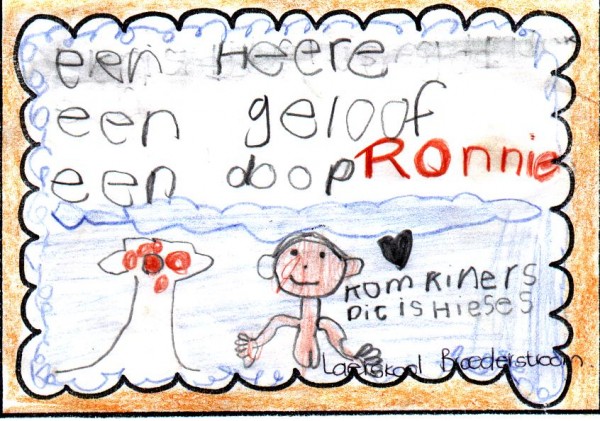 een HEERE
een geloof
een doop RONNIE
KOM KINERS
DIT IS HIESES
Laerskool Broederstroom